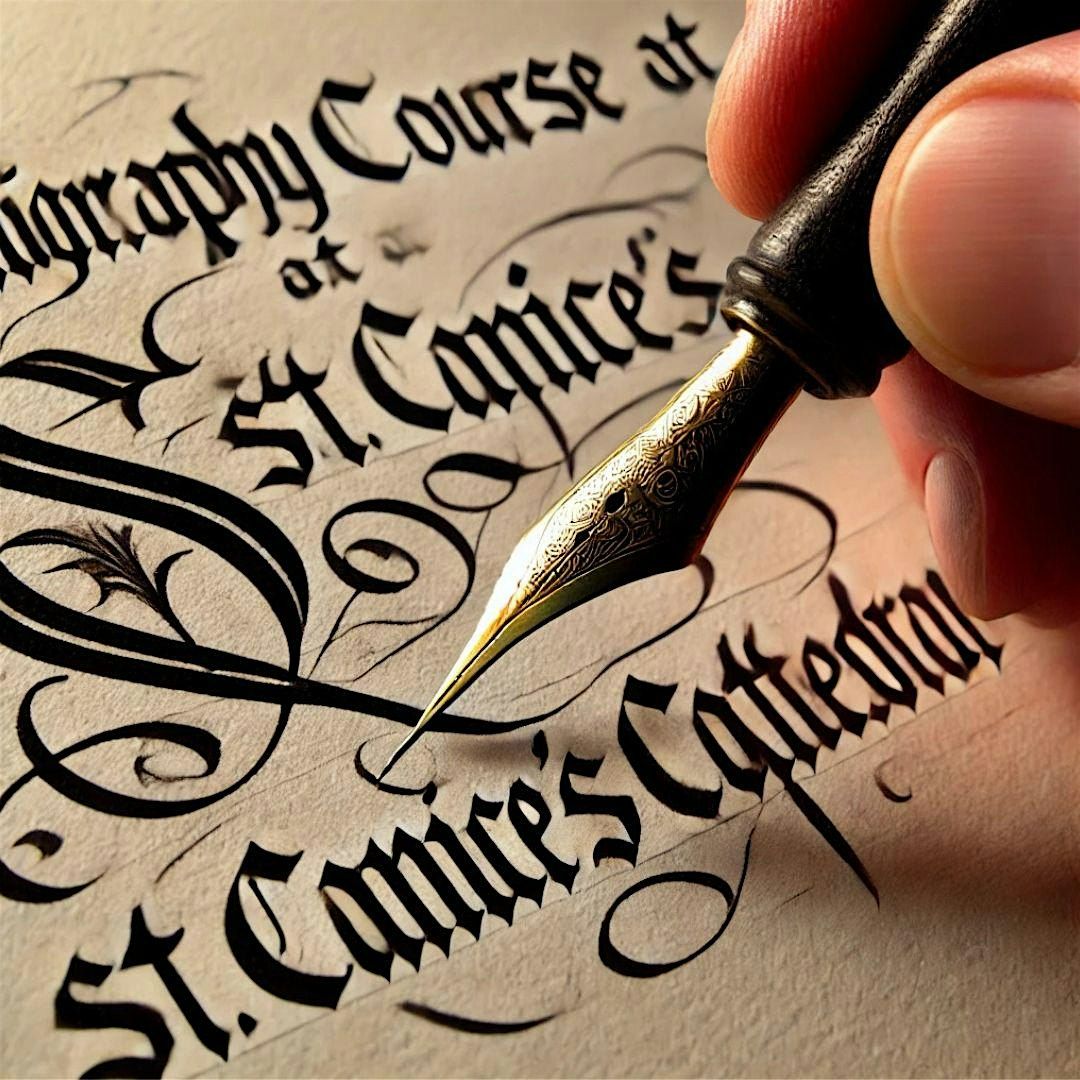 lligraphy Course at
at
St. Canice's
St. Canice's Cattedral